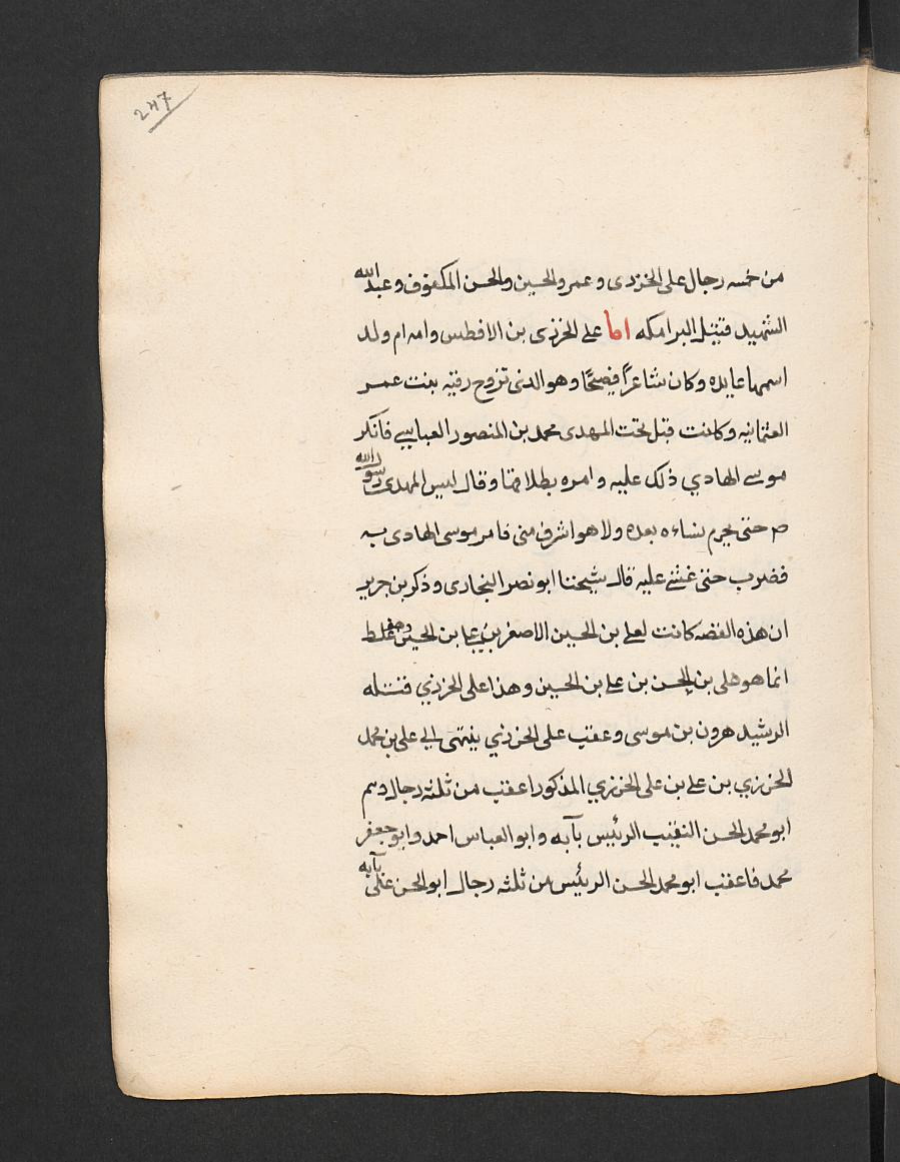 247
من خمسه رجال على الخرزى و عمر والحسين والحسن المكفوف وعبد الله
الشهيد قتيل البرامكه اما على الخرزى بن الافطس وامه ام ولد
اسمها عابده وكان شاعراً فصيحًا وهو الذى تزوج رقيه بنت عمر
العثمانيه وكانت قبل تحت المهدى محمد بن المنصور العباسي فانكر
موسى الهادي ذلك عليه وامره بطلاقها وقال ليس المهدى رسول الله
ص حتى يحرم نساءه بعده ولا هو اشرف منى فامر موسى الهادى به
فضرب حتى غشى عليه قال شيخنا ابو نصر البخارى وذكر بن جرير
ان هذه القصه كانت لعلى بن الحسين الاصغر بن على بن الحسين وغلط
انما هو على بن الحسن بن على بن الحسين وهذا على الخرزي قتله
الرشيد هرون بن موسى وعقب على الخرزي ينتهى الى على بن محمد
الخرزي بن على بن على الخرزي المذكور اعقب من ثلثه رجال وهم
ابو محمد الحسن النقيب الرئيس بآبه وابو العباس احمد وابو جعفر
محمد فاعقب ابو محمد الحسن الرئيس من ثلثه رجال ابو الحسن على بآبه